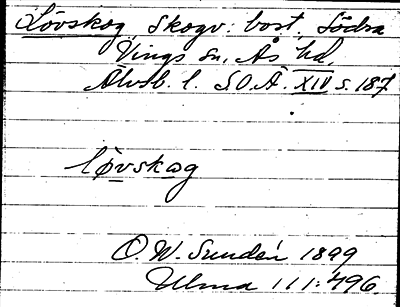 Lövskog, skogv. bost., Södra
Vings sn, Ås hd,
Älvsb. l. SOÅ. XIV s. 187
lövskog
O.W. Sundén 1899
Ulma 111:496.